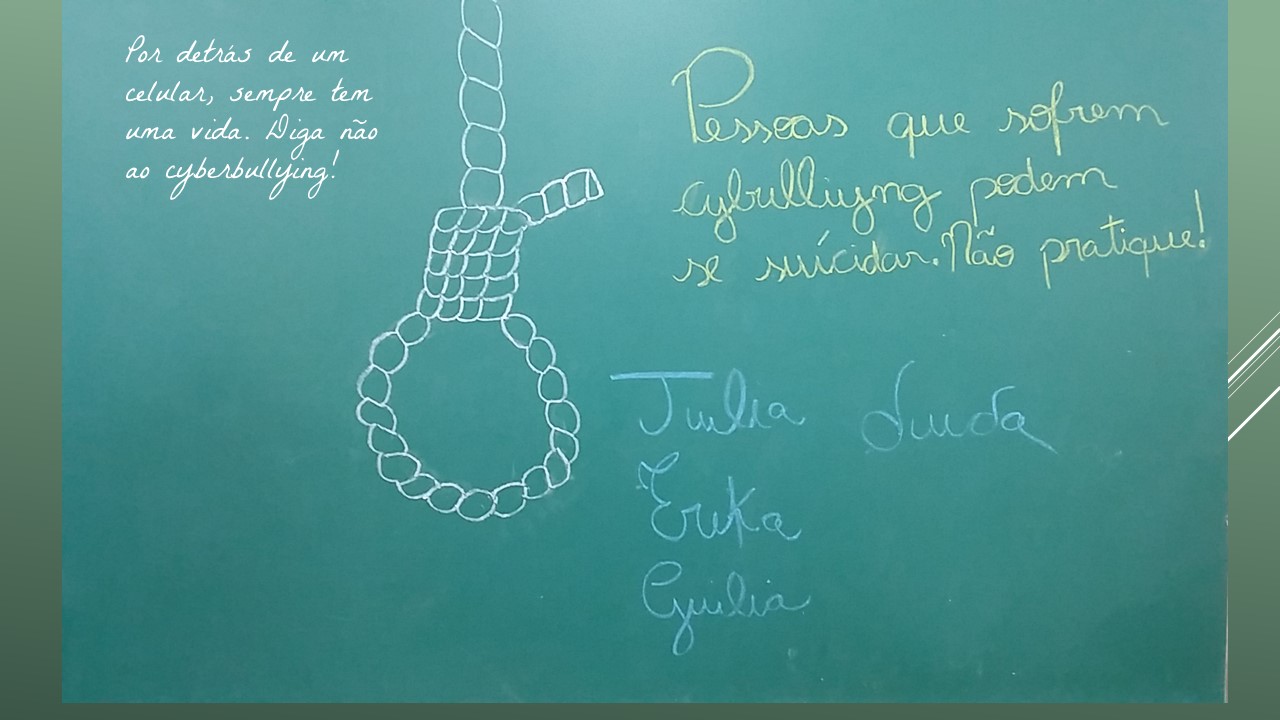 Por detrás de um
celular, sempre tem
uma vida. Diga não
ao cyberbullying!
Pessoas que sofrem
cybulliyng podem
se suícidar. Não pratique!
Julia Duda
Erika
Giulia